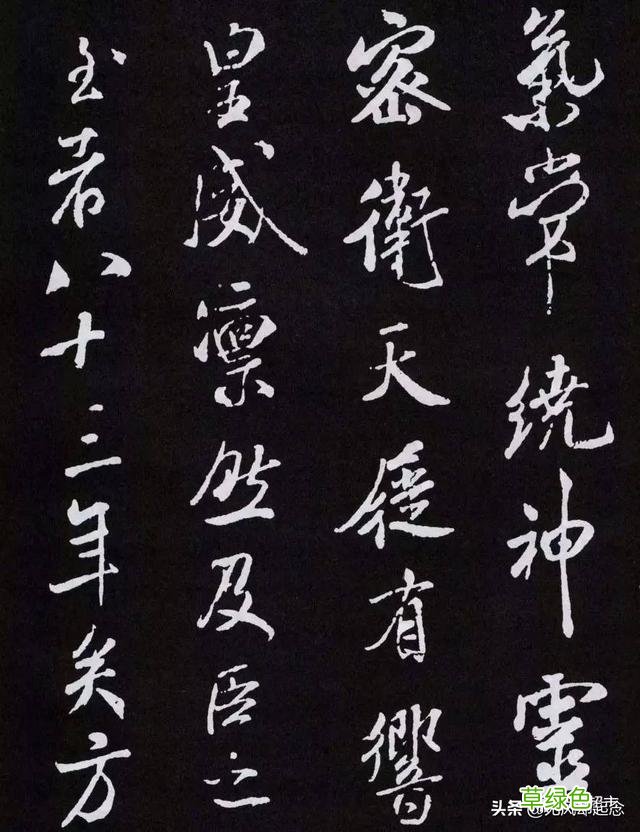 氣常繞神靈
密衛天有響
皇威凜然及臣之
至者八十三年矣方
草绿色
头条